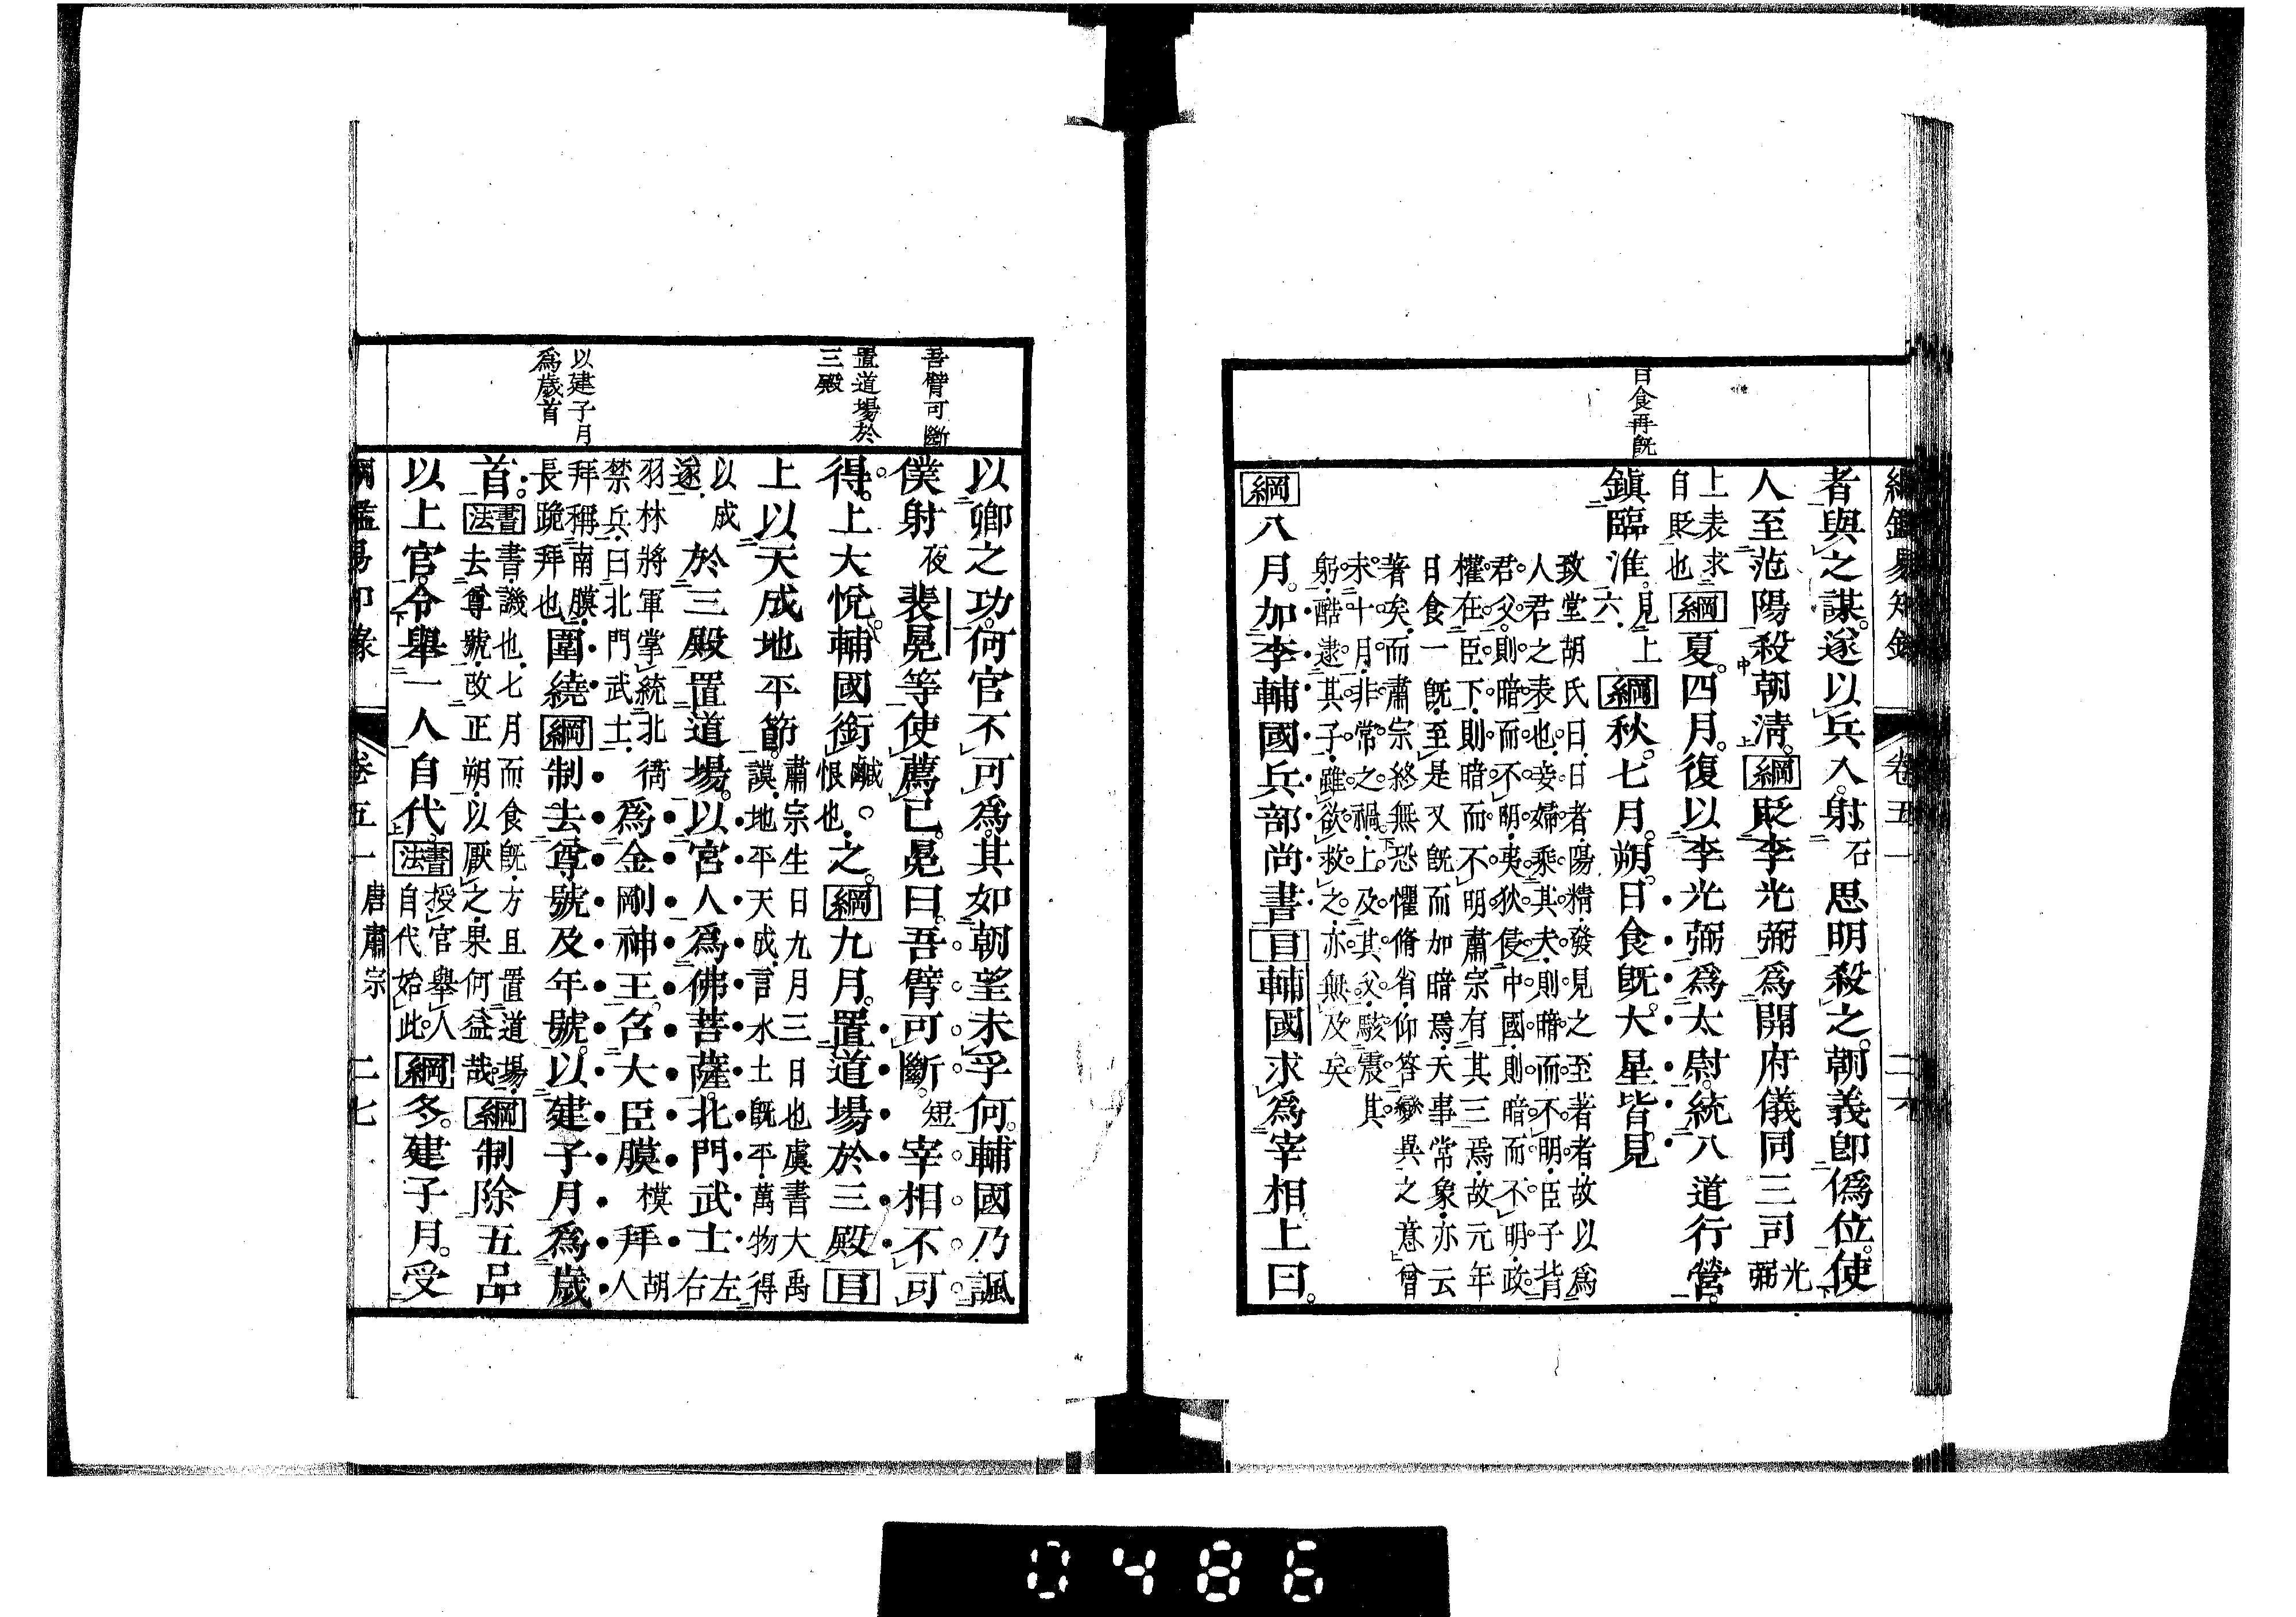 綱鑑易知錄 卷五一 二六
日食再旣
者與之謀遂以兵入射石思明殺之朝義卽僞位使
人至范陽殺朝淸綱貶李光弼爲開府儀同三司光弼
上表求自貶也綱夏四月復以李光弼爲太尉統八道行營
鎭臨淮見上六綱秋七月朔日食旣大星皆見
致堂胡氏曰日者陽精發見之至著者故以爲
人君之表也妾婦乘其夫則暗而不明臣子背
君父則暗而不明夷狄侵中國則暗而不明政
權在臣下則暗而不明肅宗有其三焉故元年
日食一旣至是又旣而加暗焉天事常象亦云
著矣而肅宗終無恐懼脩省仰答變異之意曾
未十月非常之禍上及其父駭震其
躬酷逮其子雖欲救之亦無及矣
綱八月加李輔國兵部尚書目輔國求爲宰相上曰
吾臂可斷
置道場於三殿
以建子月爲歲首
以卿之功何官不可爲其如朝望未孚何輔國乃諷
僕射夜裴冕等使薦己冕曰吾臂可斷短宰相不可
得上大悅輔國銜鹹恨也之綱九月置道場於三殿目
上以天成地平節肅宗生日九月三日也虞書大禹謨地平天成言水土旣平萬物得
以成遂於三殿置道場以宮人爲佛菩薩北門武士左右
羽林將軍掌統北衙禁兵曰北門武士爲金剛神王召大臣膜模拜胡人
拜稱南膜長跪拜也圍繞綱制去尊號及年號以建子月爲歲
首書法書譏也七月而食旣方且置道場去尊號改正朔以厭之果何益哉綱制除五品
以上官令舉一人自代書法授官舉人自代始此綱冬建子月受
綱鑑易知錄 卷五一 唐肅宗 二七
0486